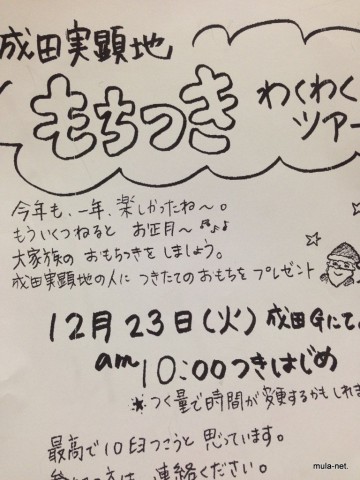 成田実顕地
もちつき わくわく
ツアー
今年も、一年、楽しかったね〜。
もういくつねると お正月〜♪♪♪
大家族の おもちつきを しましょう。
成田実顕地の人に つきたてのおもちを プレゼント
12月23日(火) 成田Gにて。
am 10:00つきはじめ
※つく量で時間が変更するかもしれま
最高で10臼つこうと 思っています。
連絡ください。
mula-net.